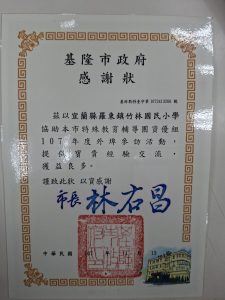 基隆市政府
感謝狀
茲以宜蘭縣羅東鎮竹林國民小學
協助本市特殊教育輔導團資優組
107年度外埠參訪活動,
提供寶貴經驗交流,
獲益良多。
謹致此狀 以資感謝
市長 林右昌
中華民國 107 年